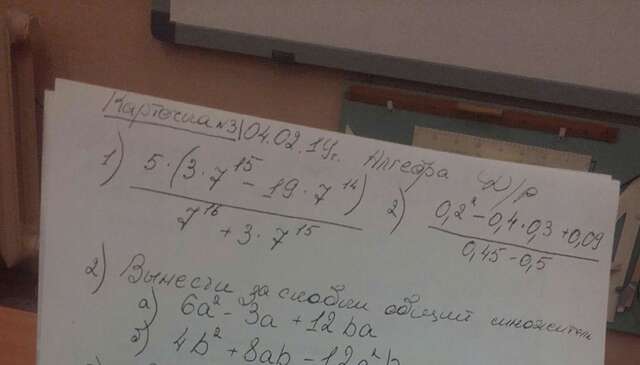 Карточка №3 04.02.19г. Алгебра Д/р
1) (5·(3·7^15 − 19·7^14))/(7^16 + 3·7^15)
2) (0,2² − 0,4·0,3 + 0,09)/(0,45 − 0,5)
2) Вынести за скобки общий множитель
а) 6a² − 3a + 12ba
б) 4b² + 8ab − 12a²b